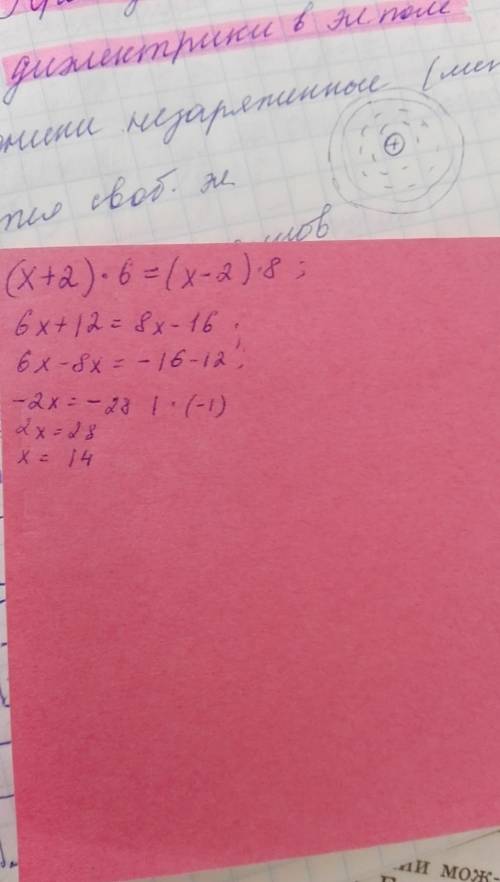 диэлектрики в эл поле
незаряженные (мет
своб. эл
(x+2)·6=(x-2)·8 ;
6x+12=8x-16 ;
6x-8x=-16-12 ;
-2x=-28 | · (-1)
2x=28
x= 14
ии мож-